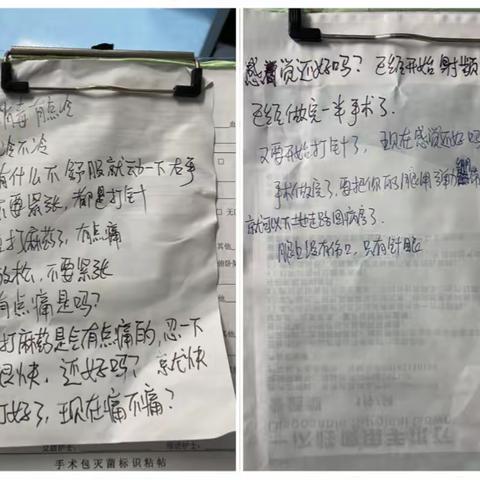 消毒有点冷
冷不冷
有什么不舒服就动一下右手
不要紧张，都是打针
打麻药了，有点痛
放松，不要紧张
有点痛是吗？
打麻药是会有点痛的，忍一下
很快，还好吗？ 就快
打好了，现在痛不痛？
手术包灭菌标识粘帖
感觉还好吗？已经开始射频
已经做完一半手术了.
又要开始打针了，现在感觉还好吗
手术做完了，要把你的腿用弹力绷
就可以下地走路回病房了.
腿上没有伤口，只有针眼